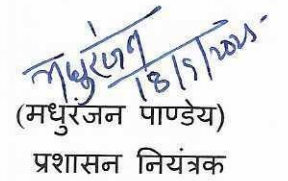 मधुरंजन
18/9/2025
(मधुरंजन पाण्डेय)
प्रशासन नियंत्रक